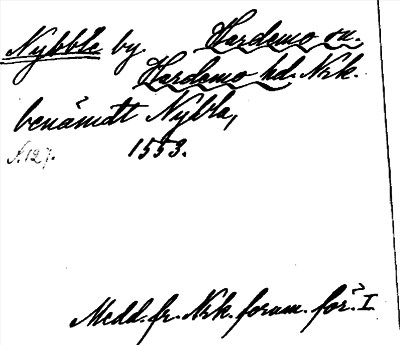 Nybble by. Hardemo sn.
Hardemo hd. Nrk.
benämdt Nybla,
s. 127. 1553.
Medd. fr. Nrk. fornm. för. I.